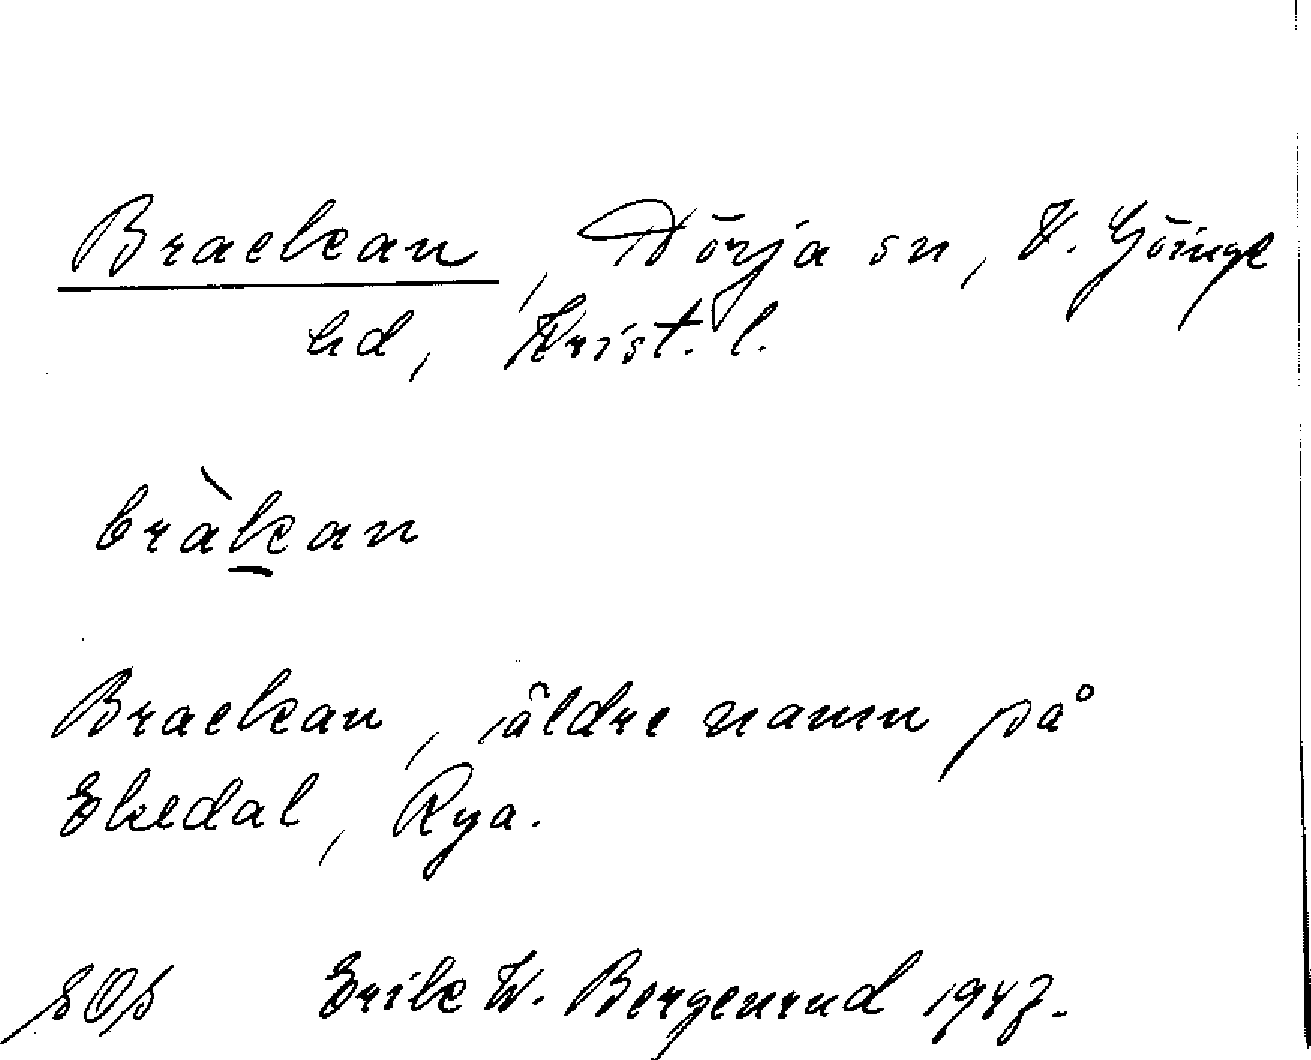 Brackan, Hörja sn, V. Göinge
hd, Krist. l.
bràkan
Brackan, äldre namn på
Ekedal, Rya.
Erik W. Bergenrud 1947.